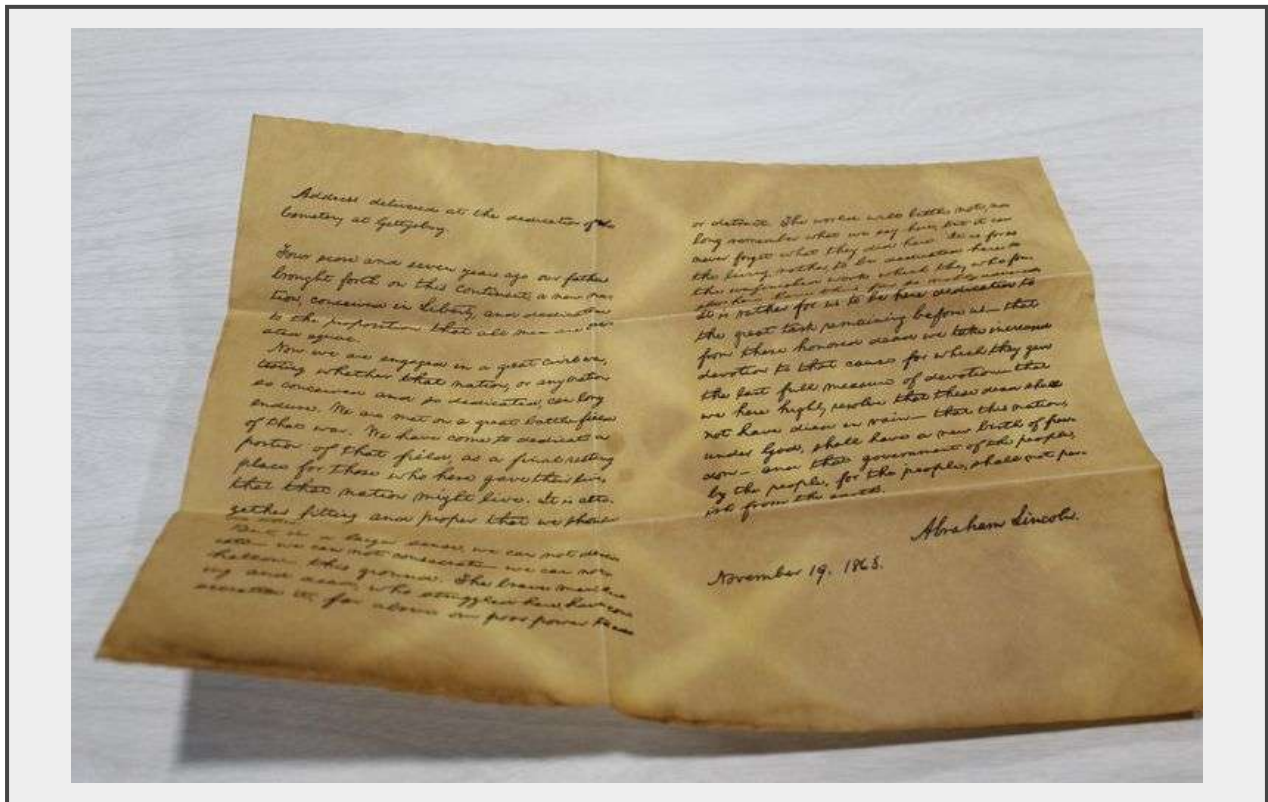 Address delivered at the dedication of the
Cemetery at Gettysburg.
Four score and seven years ago our fathers
brought forth on this continent, a new na-
tion, conceived in Liberty, and dedicated
to the proposition that all men are cre-
ated equal.
Now we are engaged in a great civil war,
testing whether that nation, or any nation
so conceived and so dedicated, can long
endure. We are met on a great battle-field
of that war. We have come to dedicate a
portion of that field, as a final resting
place for those who here gave their lives
that that nation might live. It is alto-
gether fitting and proper that we should
But, in a larger sense, we can not dedi-
cate— we can not consecrate— we can not
hallow— this ground. The brave men, liv-
ing and dead, who struggled here, have con-
secrated it, far above our poor power to add
or detract. The world will little note, nor
long remember what we say here, but it can
never forget what they did here. It is for us
the living, rather, to be dedicated here to
the unfinished work which they who fou-
It is rather for us to be here dedicated to
the great task remaining before us— that
from these honored dead we take increased
devotion to that cause for which they gave
the last full measure of devotion— that
we here highly resolve that these dead shall
not have died in vain— that this nation,
under God, shall have a new birth of free-
dom— and that government of the people,
by the people, for the people, shall not per-
ish from the earth.
Abraham Lincoln.
November 19, 1863.